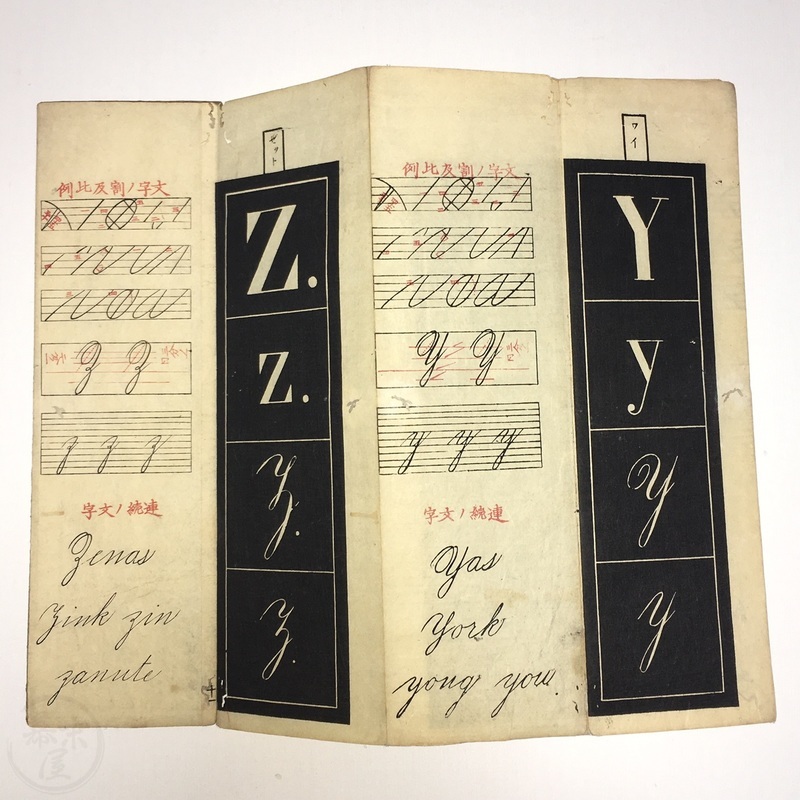 ワイ
Y
y
Y
y
文字ノ割及比例
Y Y
y y y
連続ノ文字
Yas
York
yong you.
ゼット
Z.
z.
Z.
z.
文字ノ割及比例
Z Z
z z z
連続ノ文字
Zenas
Zink zin
zanute